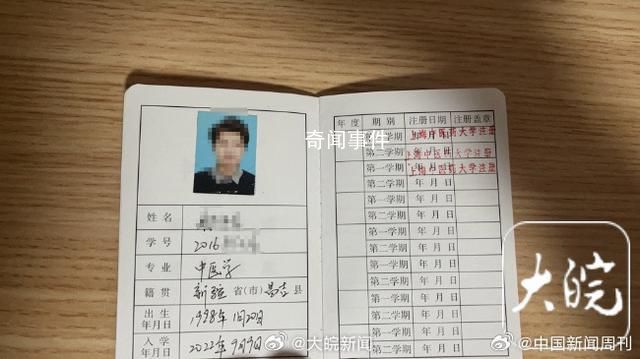 奇闻事件
姓名
学号 2016
专业 中医学
籍贯 新疆 省(市) 昌吉 县
出生年月日 1998年1月20日
入学年月日 2022年9月9日
年度 期别 注册日期 注册盖章
第一学期 年 月 日 上海中医药大学注册
第二学期 年 月 日 上海中医药大学注册
第一学期 年 月 日 上海中医药大学注册
第二学期 年 月 日
第一学期 年 月 日
第二学期 年 月 日
第一学期 年 月 日
第二学期 年 月 日
第一学期 年 月 日
第二学期 年 月 日
第一学期 年 月 日
第二学期 年 月 日
大皖
@大皖新闻
@中国新闻周刊